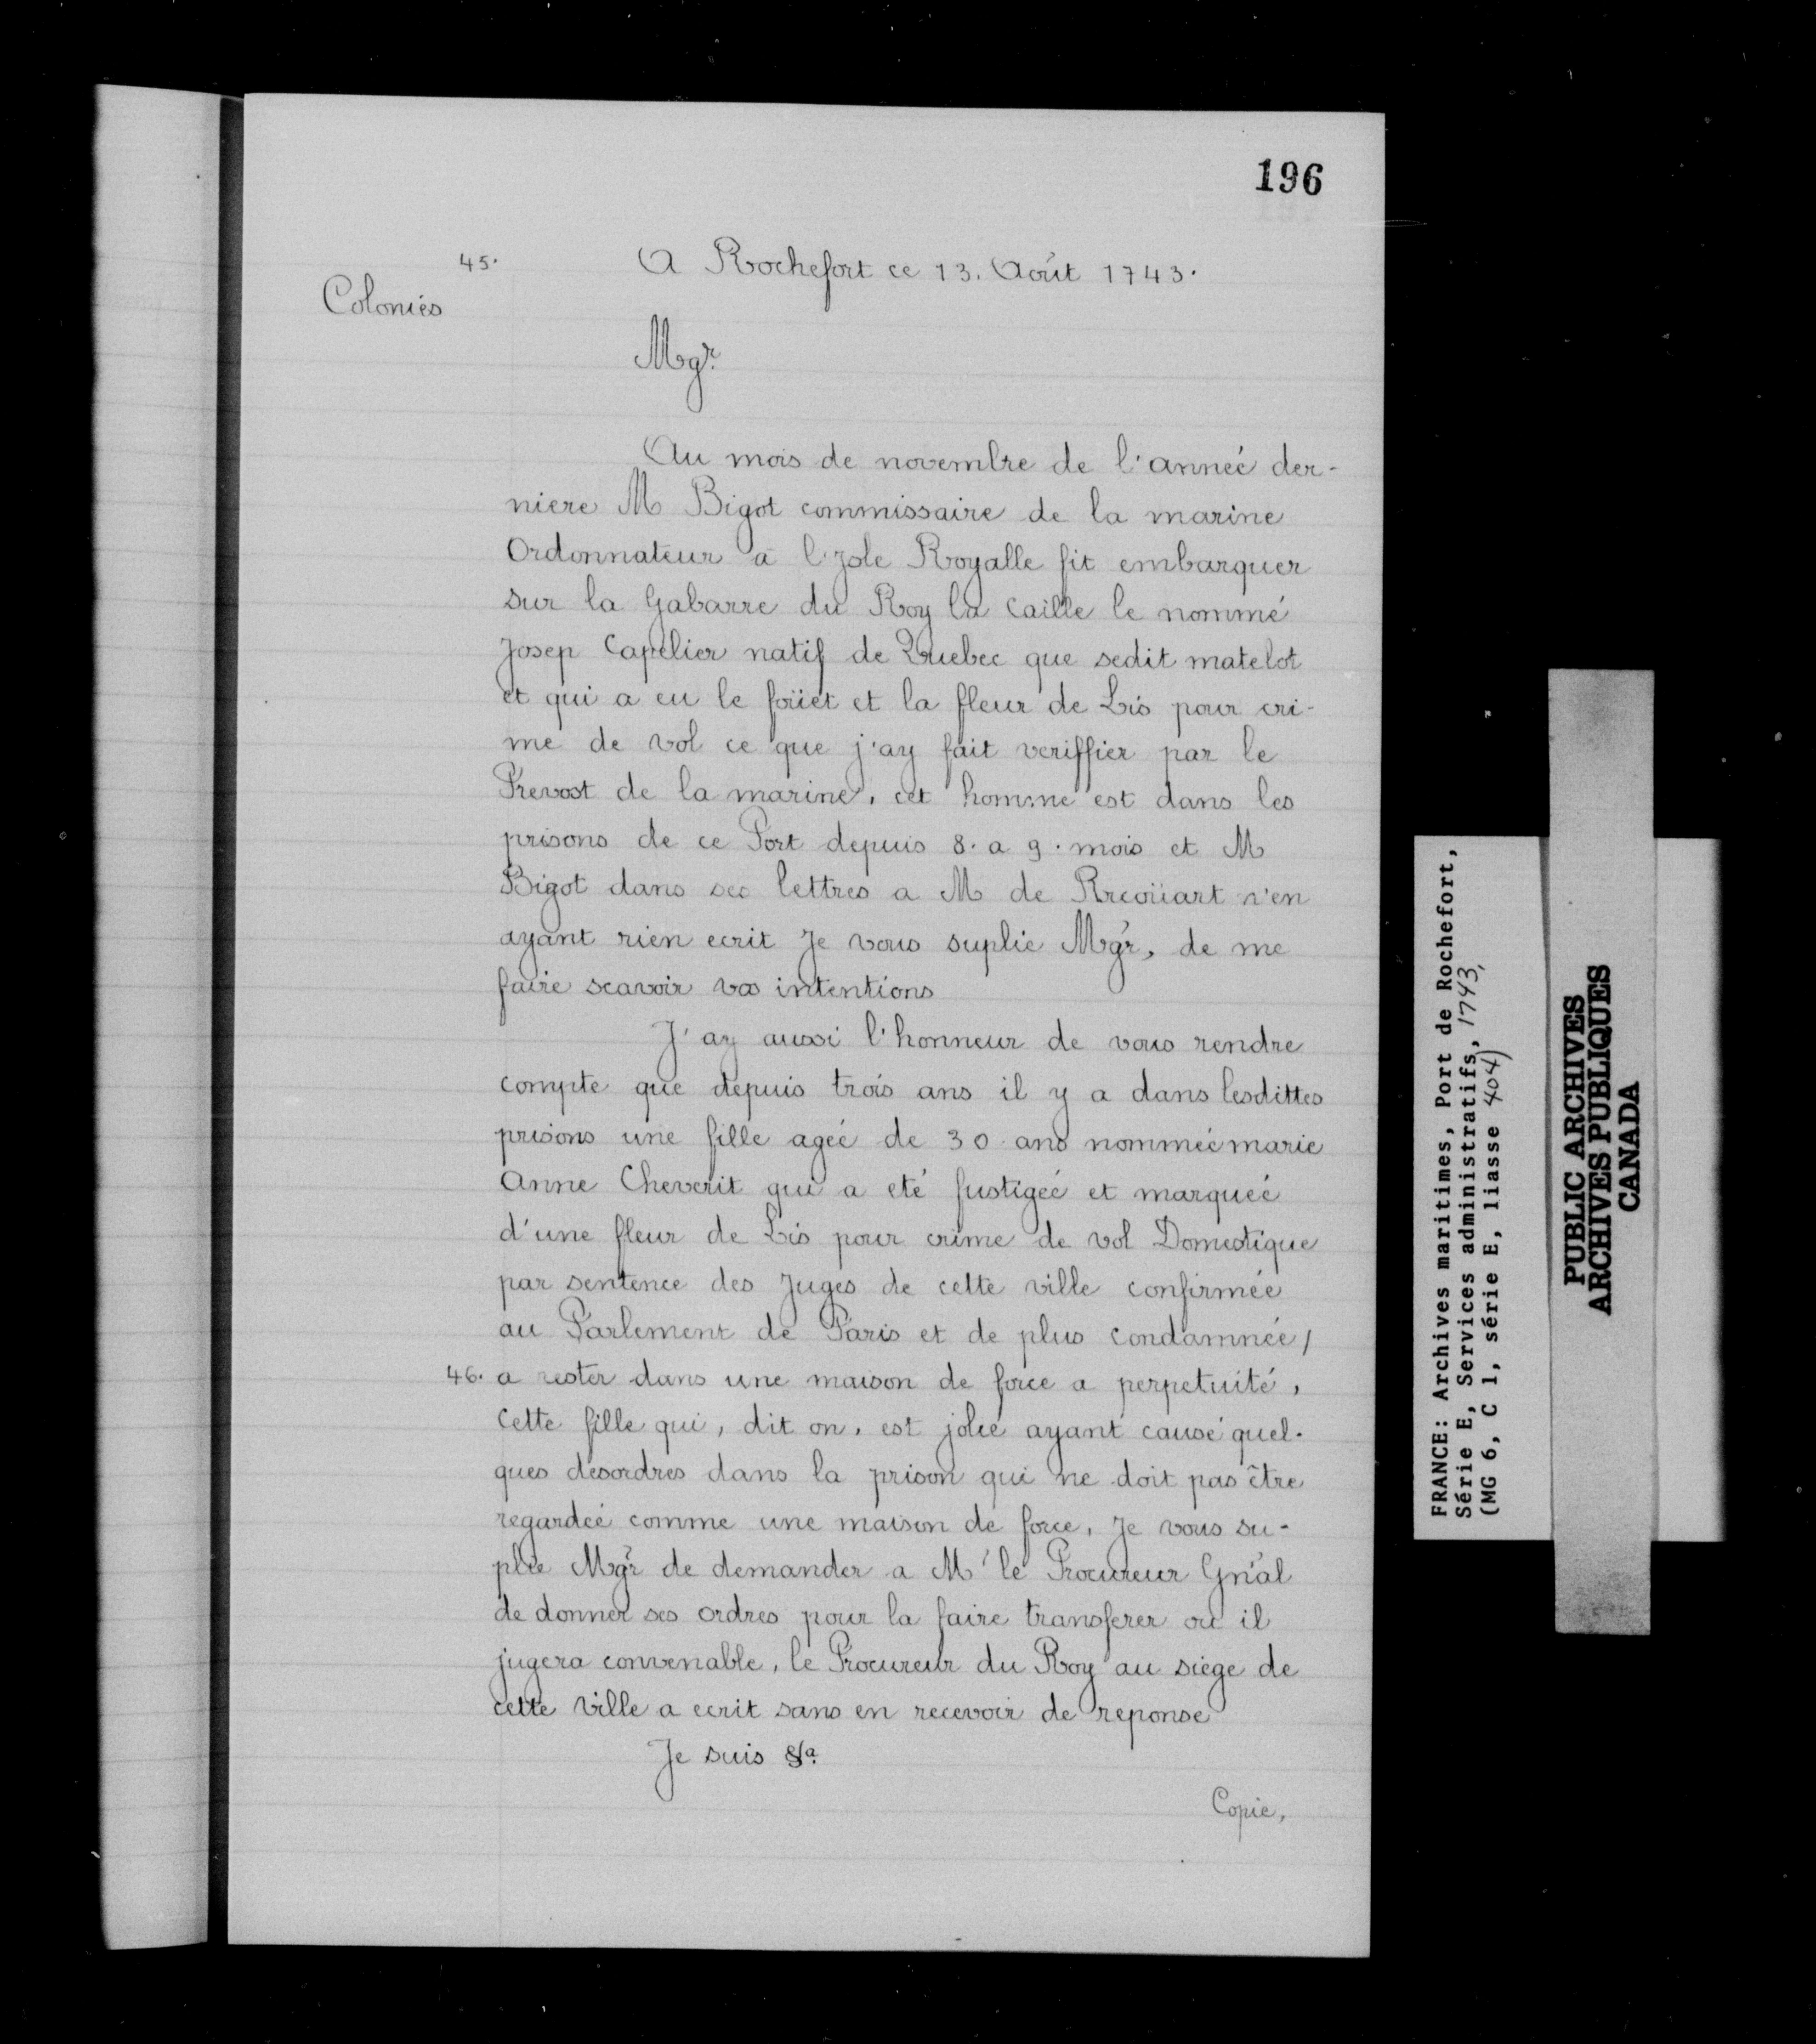 196
45.
A Rochefort ce 13. Août 1743.
Colonies
Mgr.
Au mois de novembre de l'anneé der-
niere M Bigot commissaire de la marine
Ordonnateur a l'Isle Royalle fit embarquer
sur la Gabarre du Roy la Caille le nommé
Josep Capelier natif de Quebec que sedit matelot
et qui a eu le foüet et la fleur de Lis pour cri-
me de vol ce que j'ay fait veriffier par le
Prevost de la marine, cet homme est dans les
prisons de ce Port depuis 8. a 9. mois et M
Bigot dans ses lettres a M de Ricoüart n'en
ayant rien ecrit Je vous suplie Mgr, de me
faire scavoir vos intentions
J'ay aussi l'honneur de vous rendre
compte que depuis trois ans il y a dans lesdittes
prisons une fille ageé de 30 ans nommeé marie
Anne Cheverit qui a eté fustigeé et marqueé
d'une fleur de Lis pour crime de vol Domestique
par sentence des Juges de cette ville confirmée
au Parlement de Paris et de plus condamnée/
46. a rester dans une maison de force a perpetuité,
Cette fille qui, dit on, est jolie ayant causé quel-
ques desordres dans la prison qui ne doit pas être
regardeé comme une maison de force, Je vous su-
plie Mgr de demander a M' le Procureur Gn'al
de donner ses ordres pour la faire transferer ou il
jugera convenable, le Procureur du Roy au siege de
cette Ville a ecrit sans en recevoir de reponse
Je suis &a.
Copie,
FRANCE: Archives maritimes, Port de Rochefort,
Série E, Services administratifs, 1743,
(MG 6, C 1, série E, liasse 404)
PUBLIC ARCHIVES
ARCHIVES PUBLIQUES
CANADA